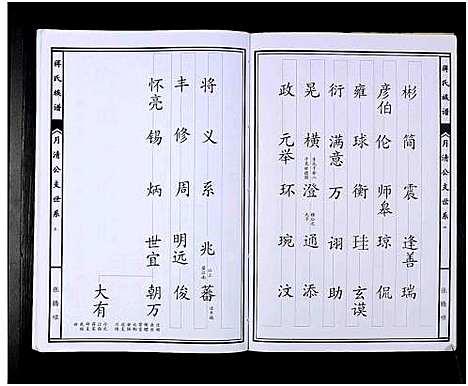 彬 简 震 逢善 瑞
彦伯 伦 师皋 琼 侃
雍 球 衡 珪 玄谟
衍 满意 万 诩 助
晃 横 澄 通 添
政 元举 环 琬 汶
蒋氏族谱
月清公支世系
将 义 系 兆 蕃
丰 修 周 明远 俊
怀亮 锡 炳 世宜 朝万
大有
蒋氏族谱
月清公支世系